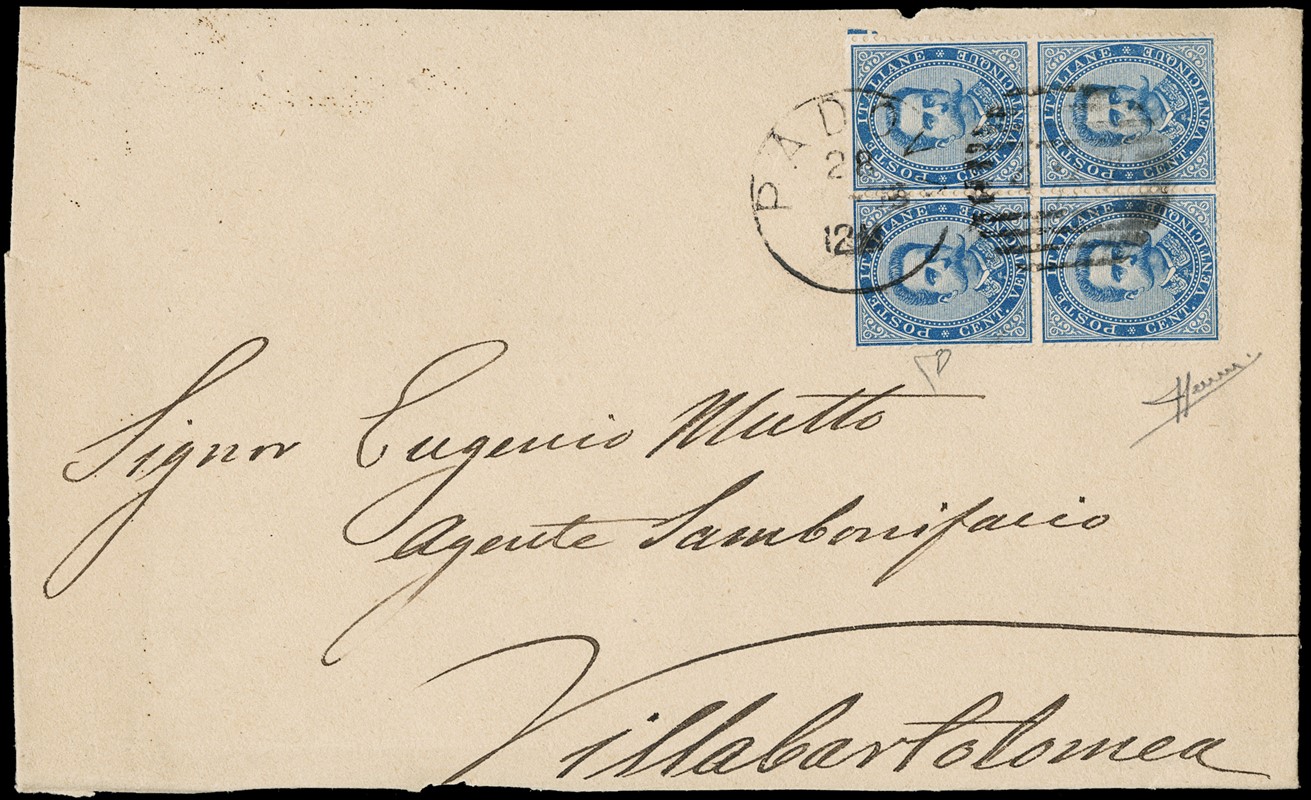 POSTE ITALIANE * CENT. VENTICINQUE *
POSTE ITALIANE * CENT. VENTICINQUE *
POSTE ITALIANE * CENT. VENTICINQUE *
POSTE ITALIANE * CENT. VENTICINQUE *
PADOV
28
12M
Signor Eugenio Mutto
Agente Sambonifacio
Villabartolomea